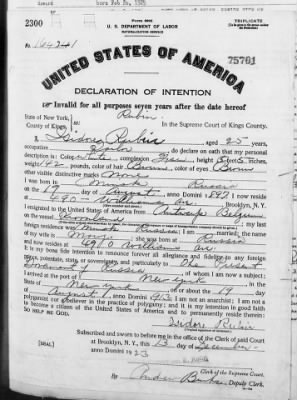 born Feb 20, 1925
2300
Form 2202
U. S. DEPARTMENT OF LABOR
NATURALIZATION SERVICE
TRIPLICATE
UNITED STATES OF AMERICA
75761
DECLARATION OF INTENTION
Invalid for all purposes seven years after the date hereof
Rubin
State of New York,
County of Kings,
ss:
In the Supreme Court of Kings County.
I, Isidore Rubin, aged 25 years,
occupation, do declare on oath that my personal
description is: Color white, complexion, height 5 feet 5 inches,
weight 142 pounds, color of hair Brown, color of eyes Brown
other visible distinctive marks None
I was born in Minsk Russia
on the 19 day of August, anno Domini 1898; I now reside
at Williams av., Brooklyn, N.Y.
I emigrated to the United States of America from Antwerp Belgium
on the vessel; my last
foreign residence was Minsk Russia; I am married; the name
of my wife is; she was born at Russia
and now resides at Williams av.
It is my bona fide intention to renounce forever all allegiance and fidelity to any foreign
prince, potentate, state, or sovereignty, and particularly to The Present
Government of Russia, of whom I am now a subject;
I arrived at the port of New York, in the
State of New York, on or about the 19 day
of August, anno Domini 1913; I am not an anarchist; I am not a
polygamist nor a believer in the practice of polygamy; and it is my intention in good faith
to become a citizen of the United States of America and to permanently reside therein:
SO HELP ME GOD.
Isidore Rubin
Subscribed and sworn to before me in the office of the Clerk of said Court
at Brooklyn, N. Y., this 13 day of December
anno Domini 1923
[SEAL]
Clerk of the Supreme Court.
By, Deputy Clerk.